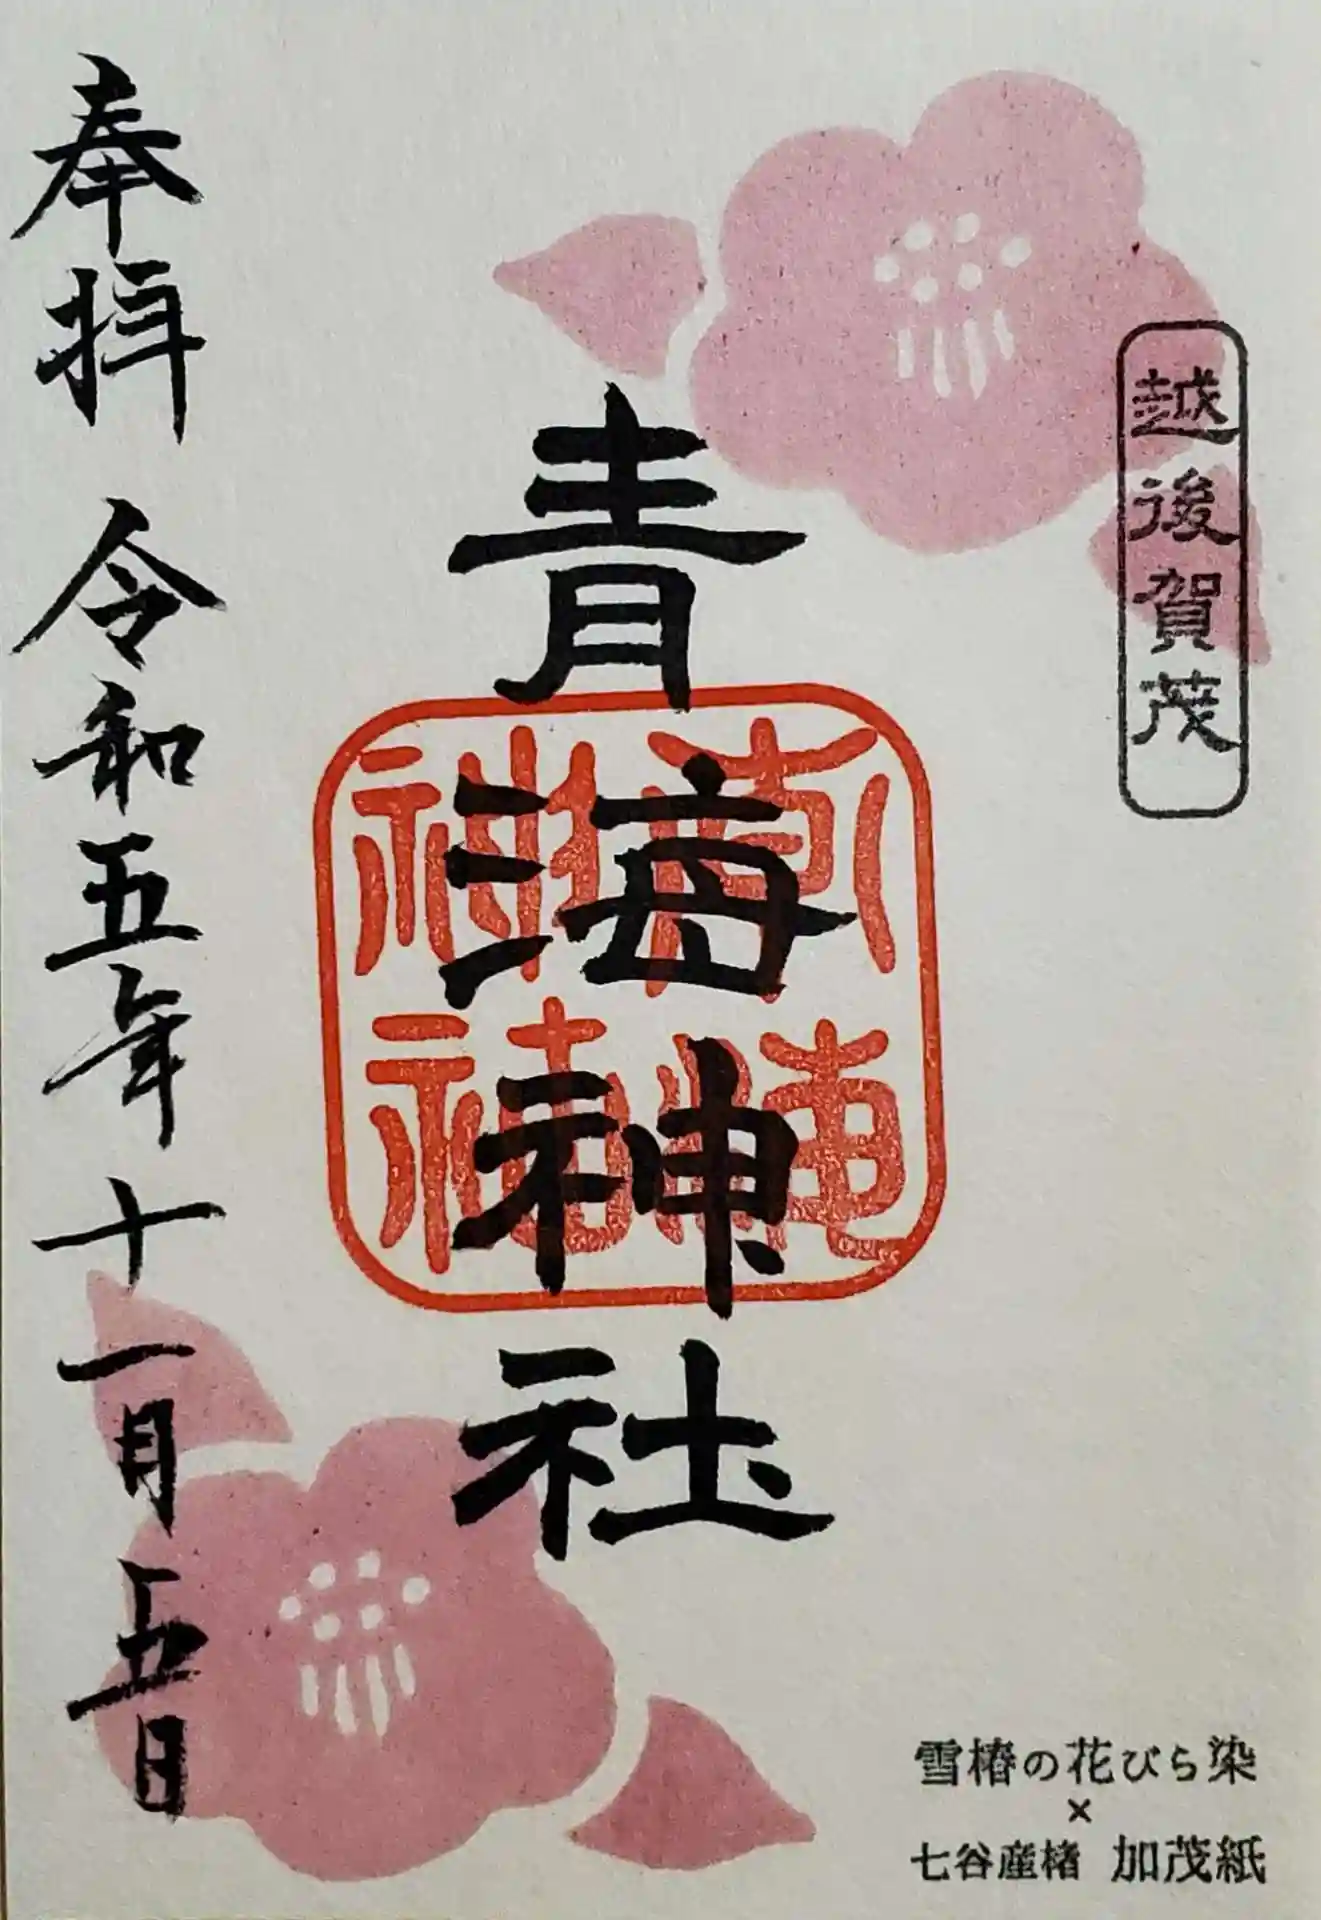 越後賀茂
青海神社
青海神社
奉拝 令和五年十一月五日
雪椿の花びら染
×
七谷産楮 加茂紙